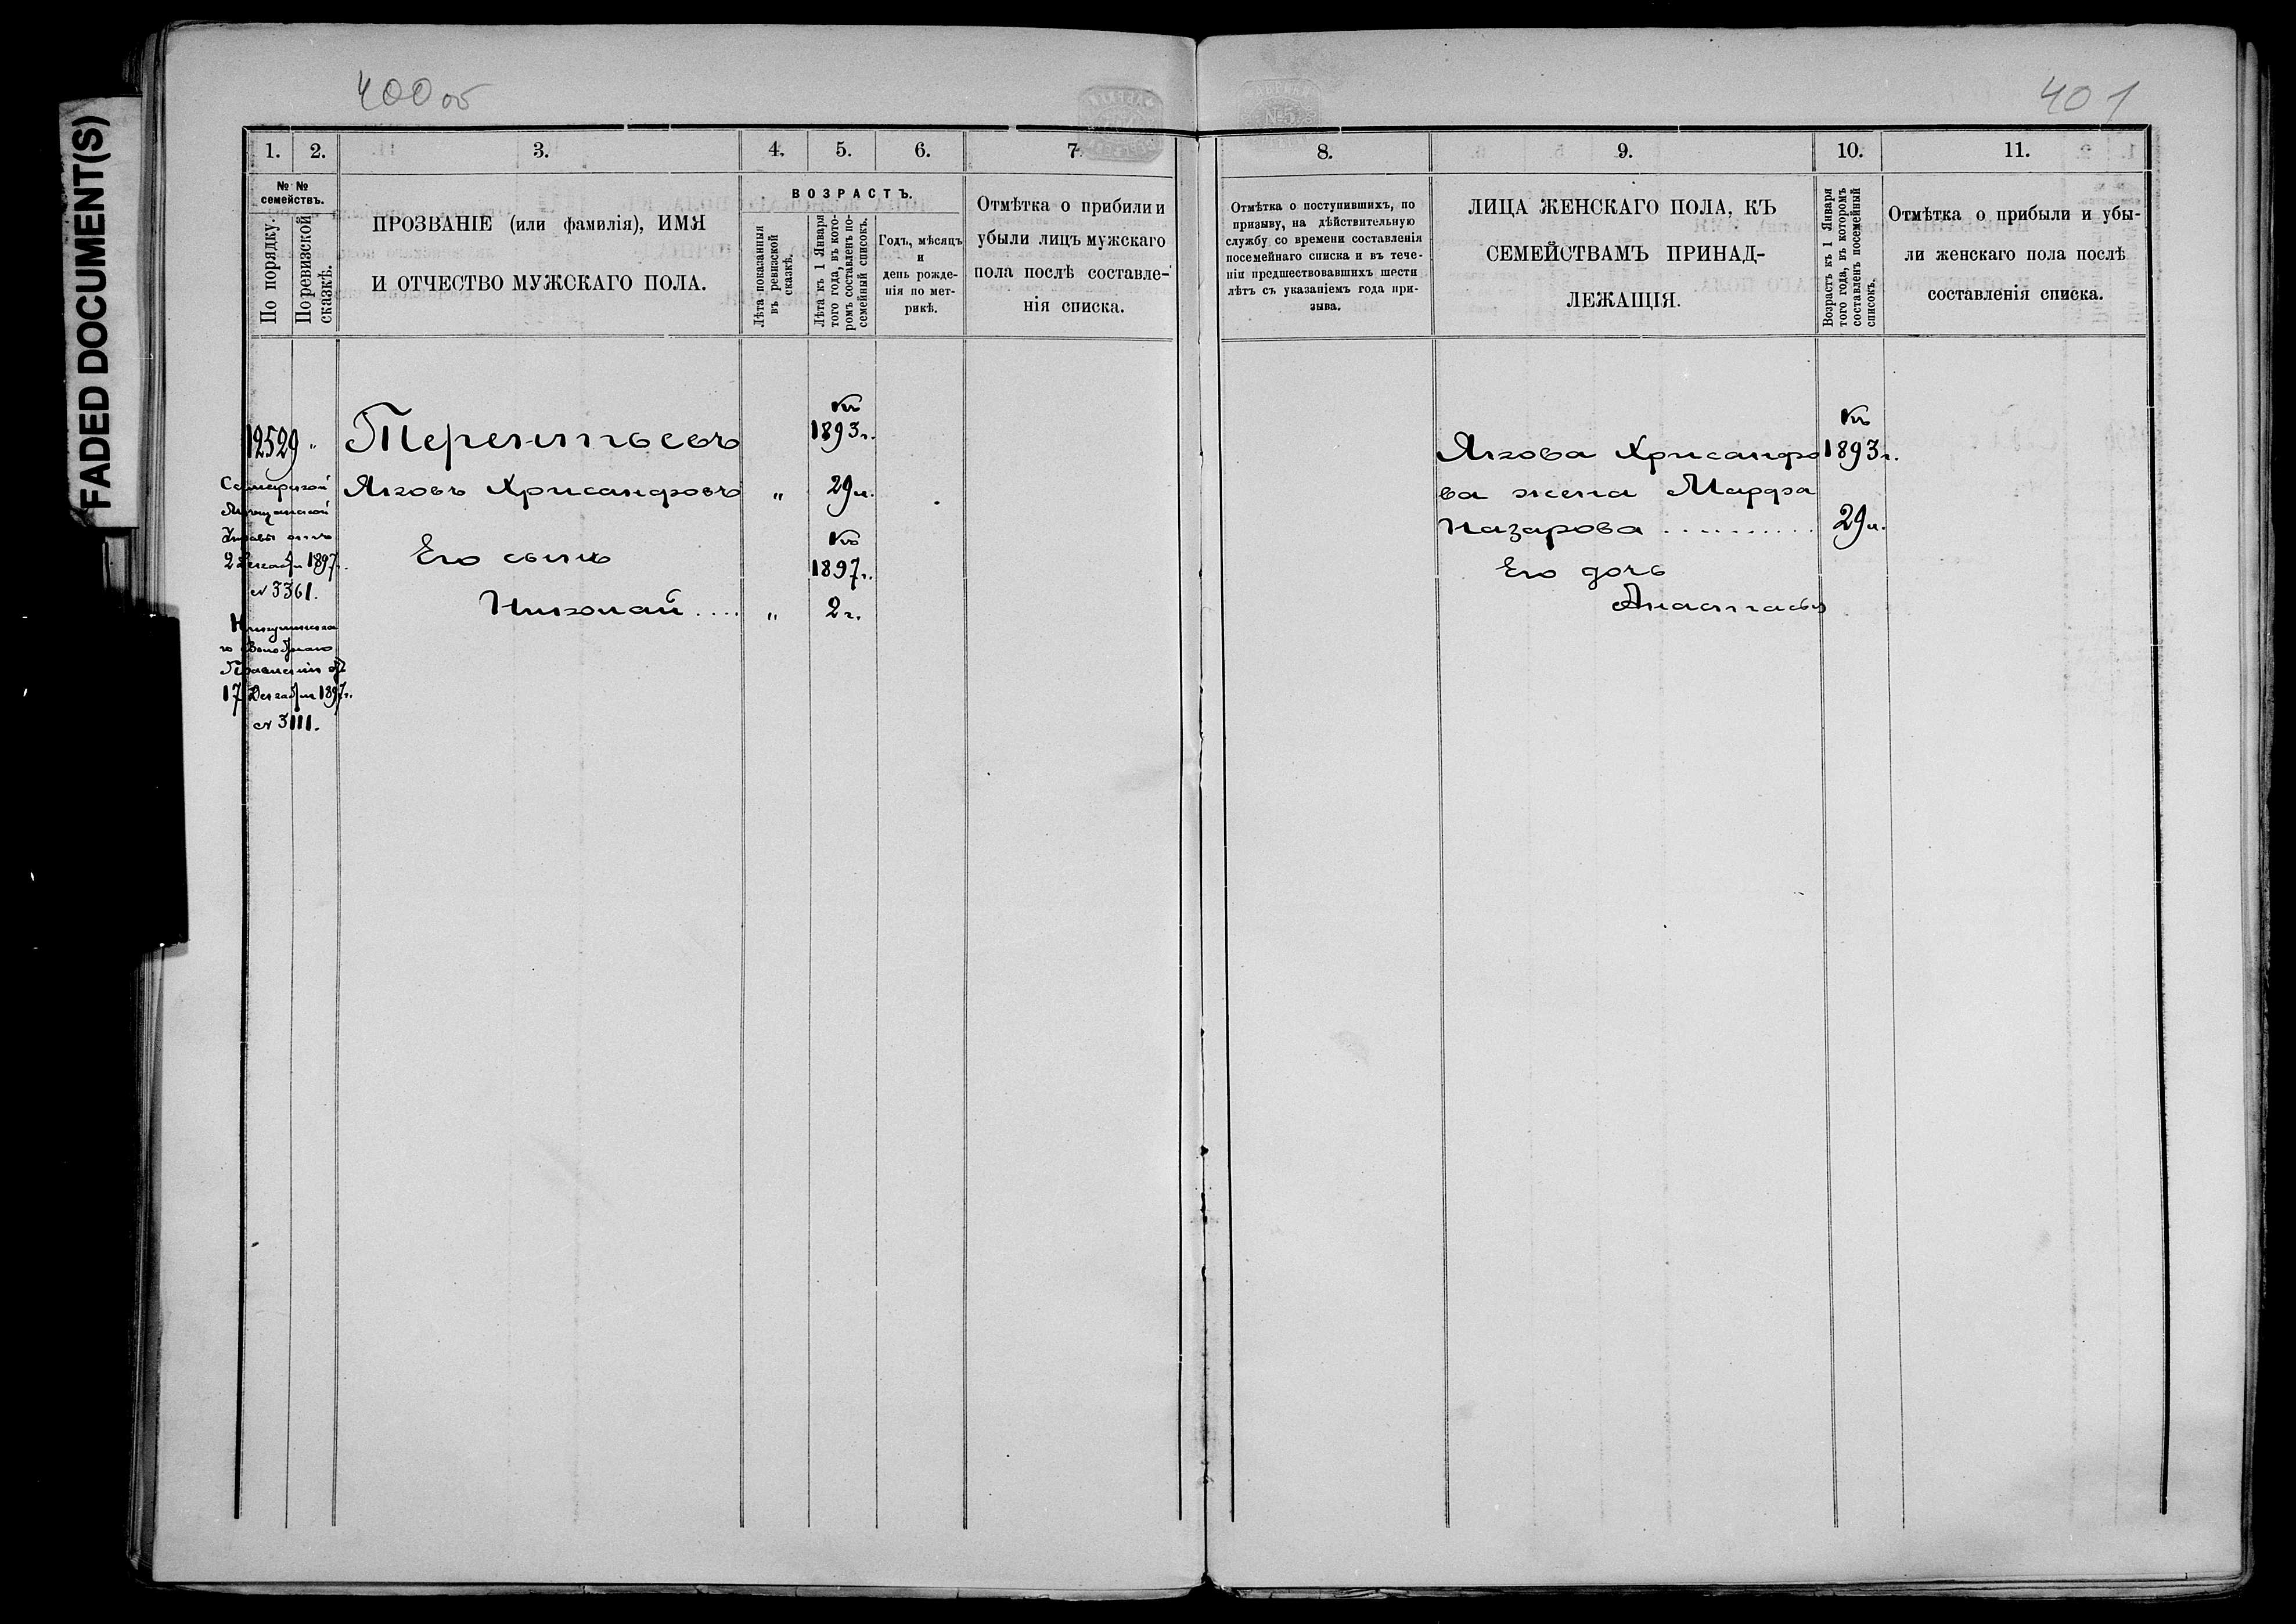 FADED DOCUMENT(S)
400 об
401
1. 2. 3. 4. 5. 6. 7.
№ № семействъ.
По порядку.
По ревизской сказкѣ.
ПРОЗВАНІЕ (или фамилія), ИМЯ
И ОТЧЕСТВО МУЖСКАГО ПОЛА.
ВОЗРАСТЪ.
Лѣта показанныя
въ ревизской
сказкѣ.
Лѣта къ 1 Января
того года, въ кото-
ромъ составленъ по-
семейный списокъ.
Годъ, мѣсяцъ
и
день рожде-
нія по мет-
рикѣ.
Отмѣтка о прибили и
убыли лицъ мужскаго
пола послѣ составле-
нія списка.
12529 "
Терентьевъ
Къ
1893 г.
Яковъ Хрисанфовъ " 29 л.
Его сынъ
Къ
1897 г.
Николай .... " 2 г.
Самарской
Мѣщанской
Управы отъ
22 Декабря 1897 г.
№ 3361.
Волостнаго
Правленія отъ
17 Декабря 1897 г.
№ 3111.
8. 9. 10. 11.
Отмѣтка о поступившихъ, по
призыву, на дѣйствительную
службу со времени составленія
посемейнаго списка и въ тече-
ніи предшествовавшихъ шести
лѣтъ съ указаніемъ года при-
зыва.
ЛИЦА ЖЕНСКАГО ПОЛА, КЪ
СЕМЕЙСТВАМЪ ПРИНАД-
ЛЕЖАЩІЯ.
Возрастъ къ 1 Января
того года, въ которомъ
составленъ посемейный
списокъ.
Отмѣтка о прибыли и убы-
ли женскаго пола послѣ
составленія списка.
Къ
1893 г.
Якова Хрисанфо
ва жена Марфа
Назарова .......... 29 л.
Его дочь
Анастасья